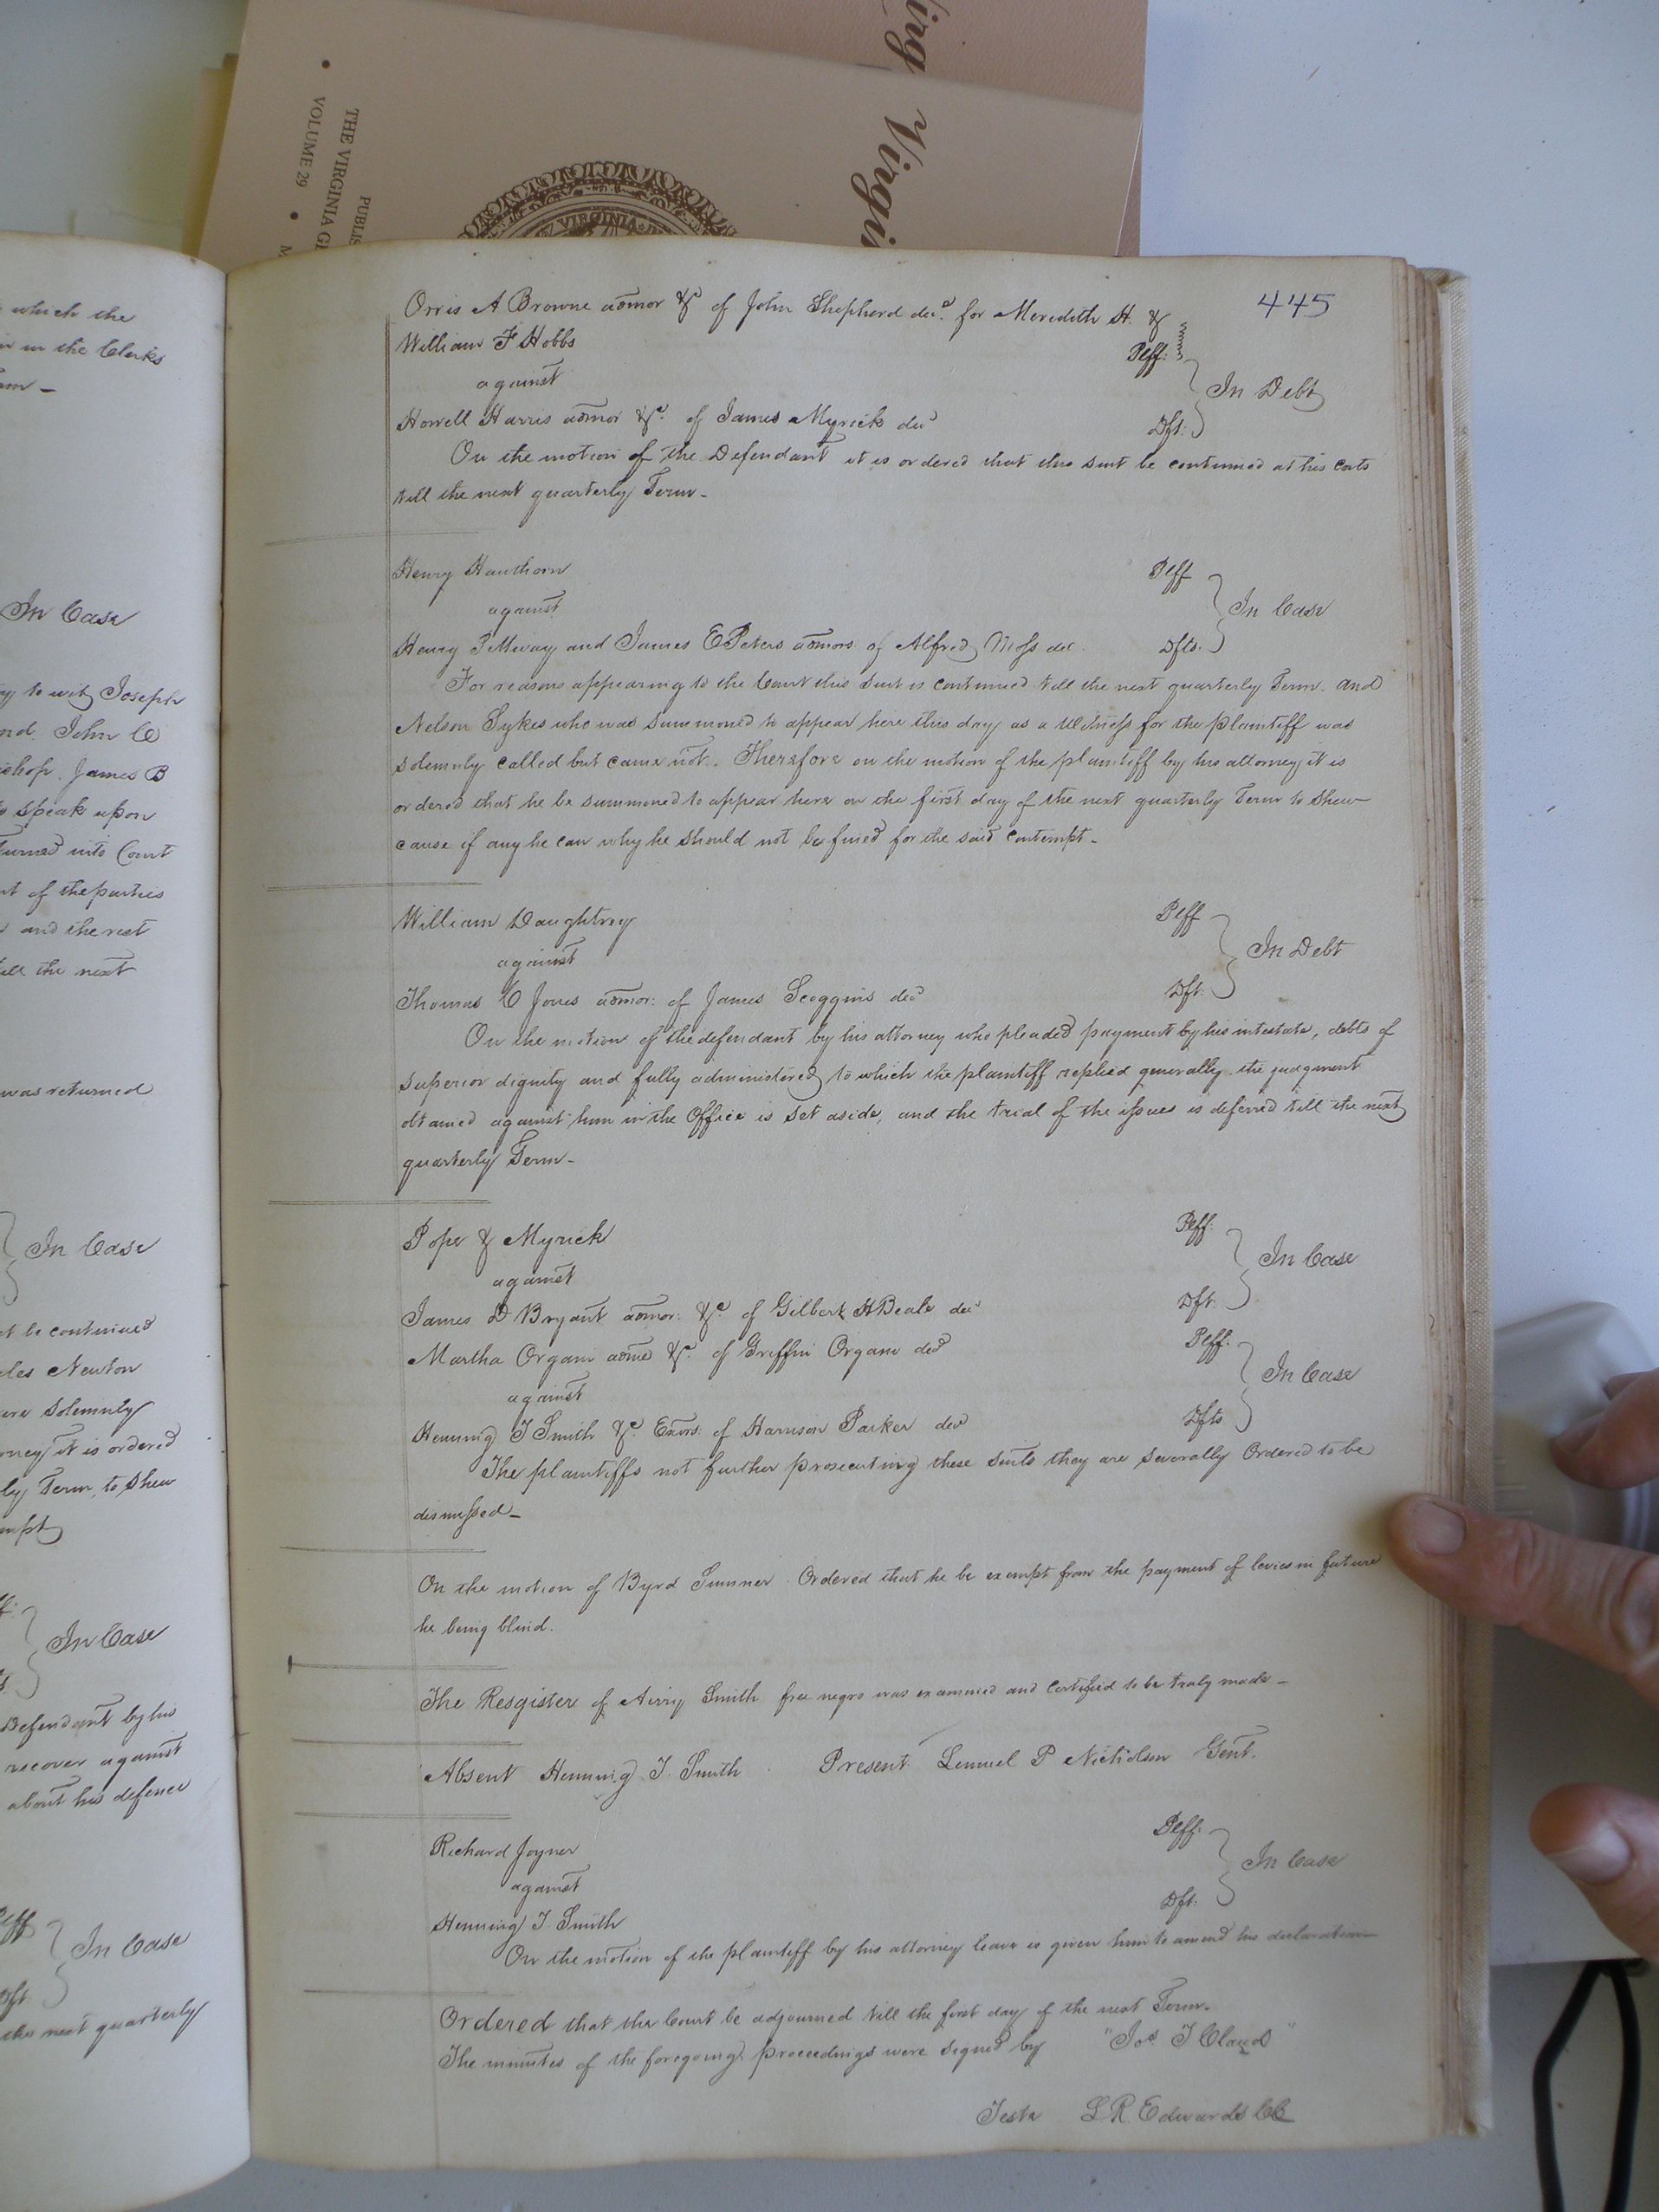 Virgi
THE VIRGINIA
VOLUME 29
VIRGINIA
which the
in the Clerks
In Case
to wit Joseph
John C
James B
speak upon
into Court
of the parties
and the rest
till the next
was returned
In Case
be continued
Newton
solemnly
it is ordered
Term, to shew
In Case
Defendant by his
recover against
about his defence
Plff
In Case
Dft
the next quarterly
445
Orris A Browne admor &c of John Shepherd decd. for Meredith H. &
William F Hobbs Plff:
against In Debt
Howell Harris admor &c. of James Myrick decd Dft:
On the motion of the Defendant it is ordered that this suit be continued at his costs
till the next quarterly Term-
Henry Hawthorn Plff
against In Case
Henry and James E Peters admors of Alfred Moss dec. Dfts.
For reasons appearing to the Court this suit is continued till the next quarterly Term. and
Nelson Sykes who was summoned to appear here this day as a Witness for the plaintiff was
solemnly called but came not. Therefore on the motion of the plaintiff by his attorney it is
ordered that he be summoned to appear here on the first day of the next quarterly Term to shew
cause if any he can why he should not be fined for the said contempt-
William Daughtrey Plff
against In Debt
Thomas C Jones admor: of James Scoggins decd Dft:
On the motion of the defendant by his attorney who pleaded payment by his intestate, debts of
superior dignity and fully administered, to which the plaintiff replied generally the judgment
obtained against him in the Office is set aside, and the trial of the issues is deferred till the next
quarterly Term-
Pope & Myrick Plff:
against In Case
James D Bryant admor: &c of Gilbert H Beale decd Dft:
Martha Organ admx &c. of Griffin Organ decd Plff:
against In Case
Henning T Smith &c. Exors: of Harrison Parker decd Dfts
The plaintiffs not further prosecuting these suits they are severally Ordered to be
dismissed-
On the motion of Byrd Sumner Ordered that he be exempt from the payment of levies in future
he being blind.
The Resgister of Airry Smith free negro was examined and certified to be truly made-
Absent Henning T. Smith Present Lemuel P Nicholson Gent.
Richard Joyner Plff:
against In Case
Henning T. Smith Dft:
On the motion of the plaintiff by his attorney leave is given him to amend his declaration
Ordered that the Court be adjourned till the first day of the next Term.
The minutes of the foregoing proceedings were signed by "Jos T Claud"
Teste L R Edwards CC